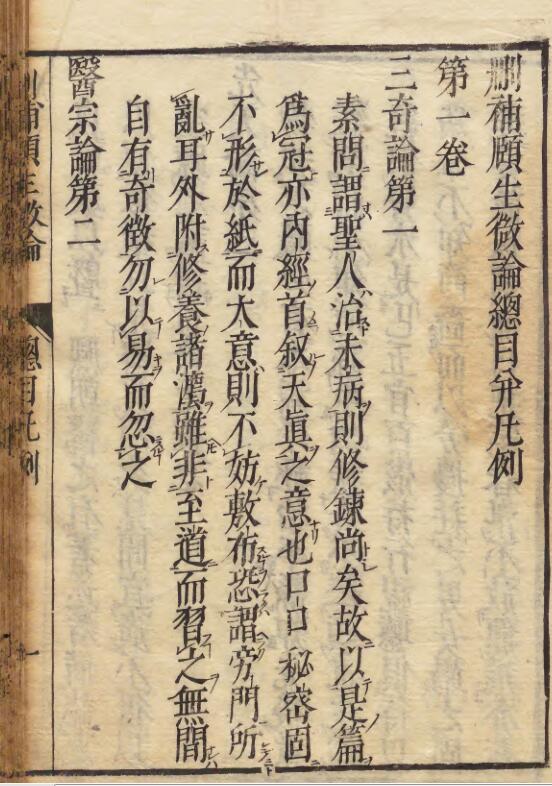 刪補頤生微論總目并凡例
第一卷
三奇論第一
素問謂聖人治未病則修鍊尚矣故以是篇
爲冠亦內經首叙天眞之意也口口秘密固
不形於紙而大意則不妨敷布恐謂旁門所
亂耳外附修養諸法雖非至道而習之無間
自有奇徵勿以易而忽之
醫宗論第二
刪補頤生微論 總目凡例 一